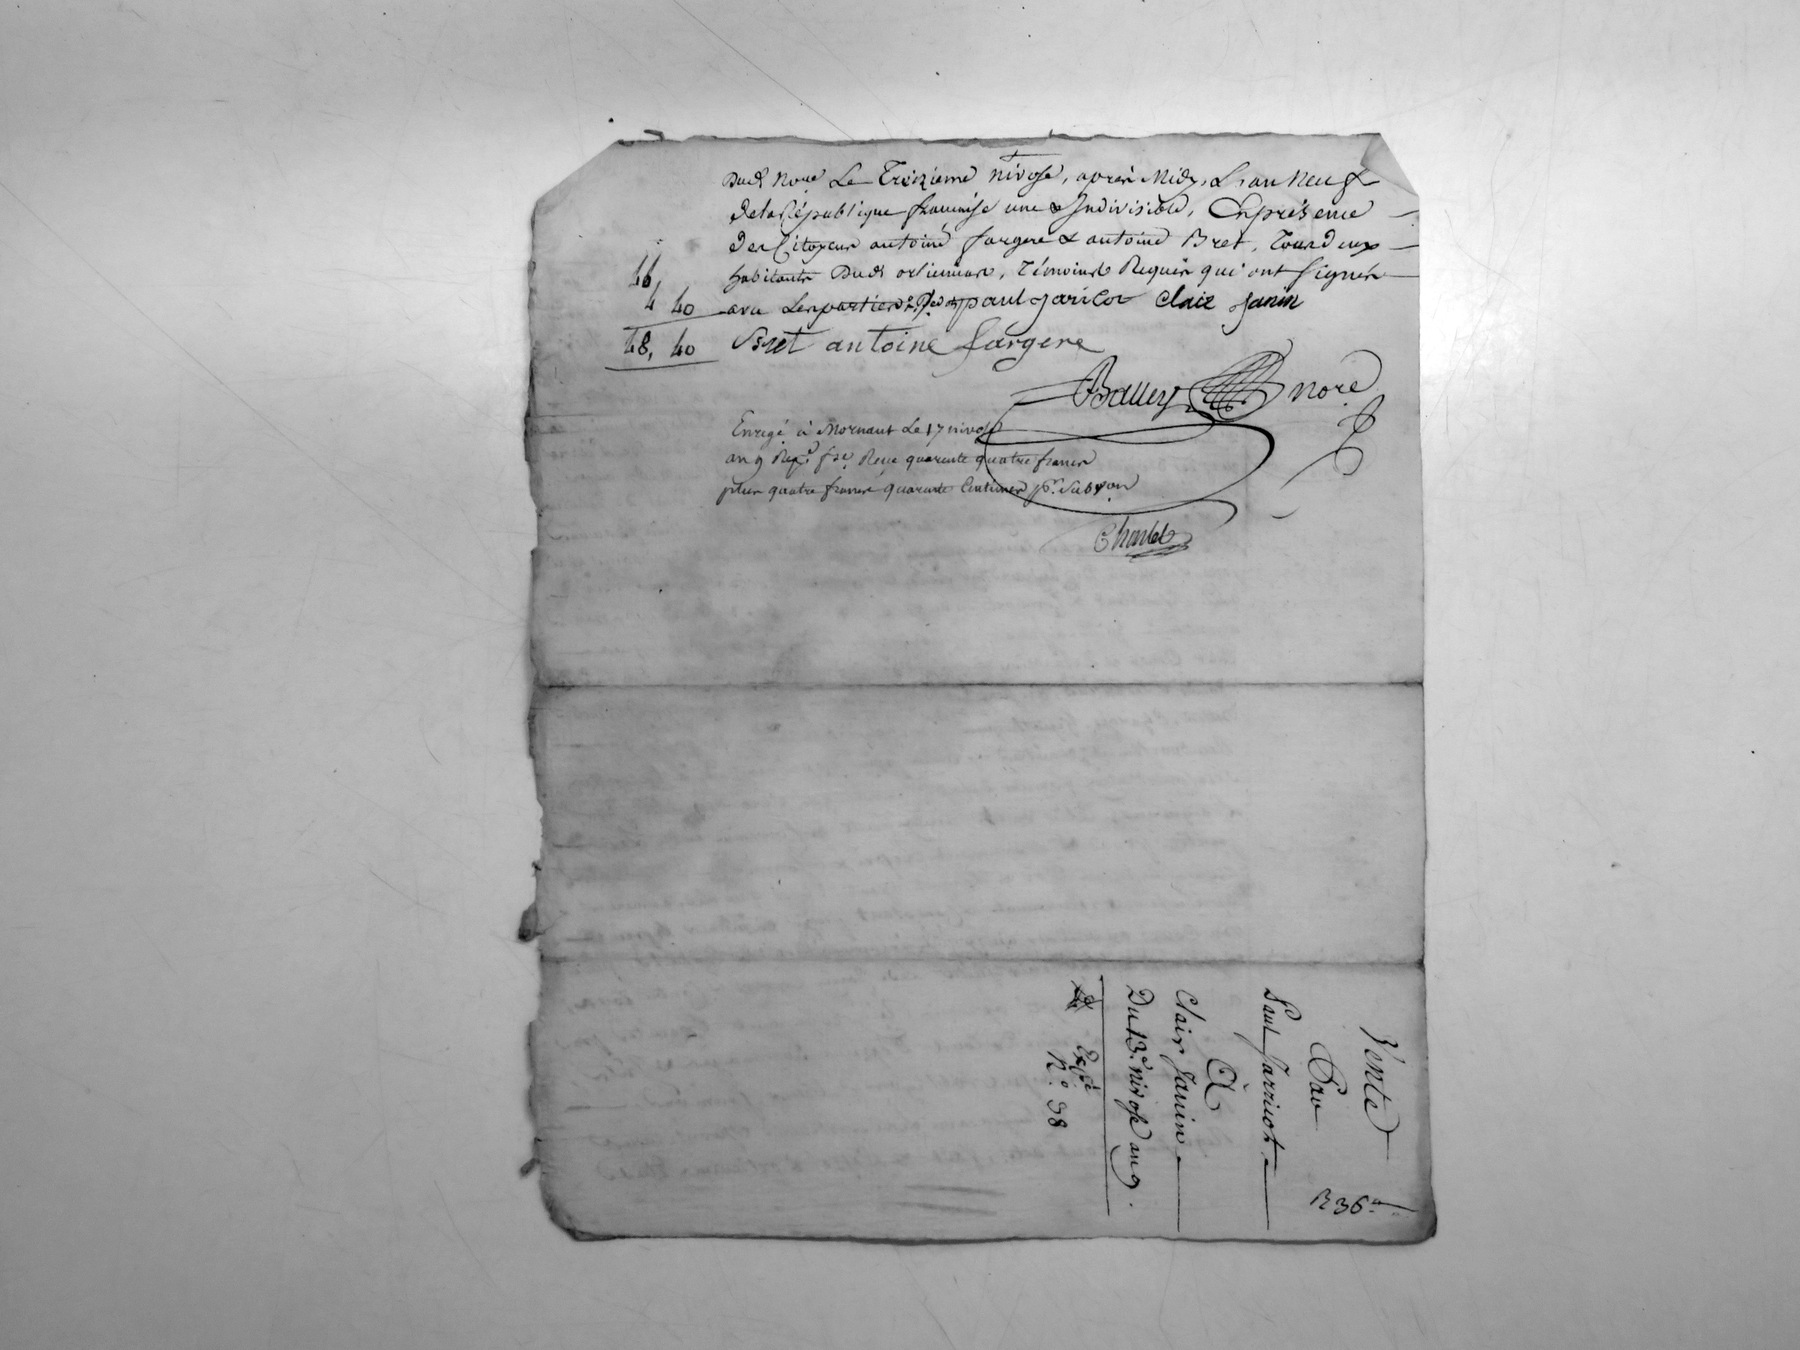 Dud. Nore Le Treizieme nivose, après Midy, L'an Neuf
de la République française une & Indivisible, En présence
des Citoyens antoine fargere & antoine Bret, Tous deux
habitants Dud. orlienas, Témoins Requis qui ont signés
avec Les parties paul jaricot Clair janin
44,
4 40
48, 40
Bret antoine fargere
Balley nore
Enrgé à Mornant Le 17 nivose
an 9 Repe. fse. Reçu quarante quatre francs
plus quatre francs quarante Centimes pr. subvon
Charlet
Vente
Par
Paul Jarricot
à
Clair Janin
Du 13e. nivose an 9.
Expé
N°. 98